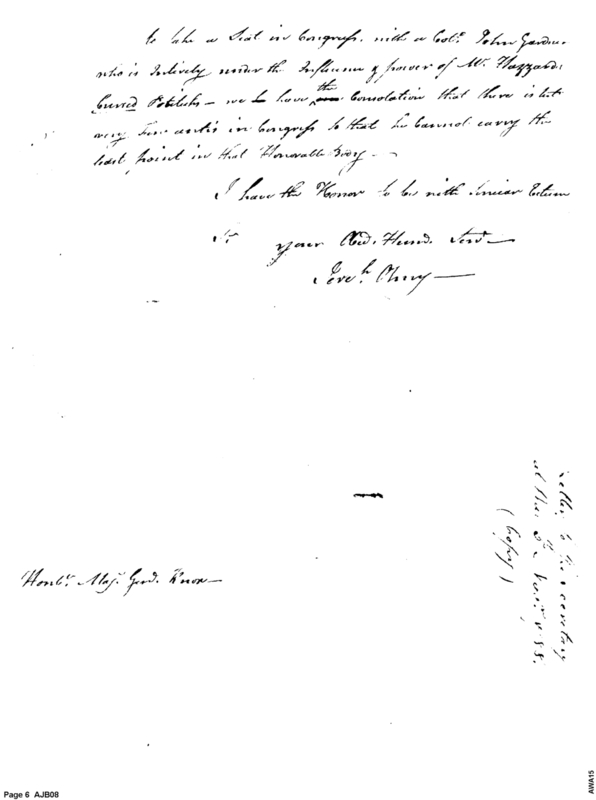 to take a Seat in Congress, with a Colo. John Gardner
who is Intirely under the Influence & power of Mr. Hazzards
Cursed Politicks — we have the Consolation that there is but
very few antis in Congress so that he Cannot carry the
least point in that Honorable Body —
I have the Honor to be with Sincear Esteem
Sr. your Obd. Hum. Servt —
Jereh. Olney —
Honbl. Maj. Genl. Knox —
Letter to the Secretary
at War
(Copy)
Page 6 AJB08
AWA15